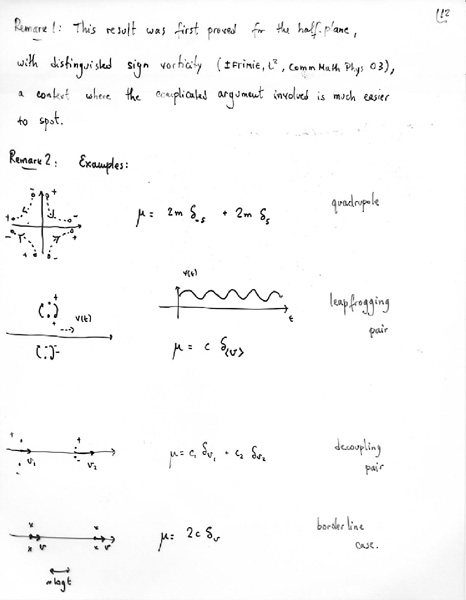 12
Remark 1: This result was first proved for the half-plane,
with distinguished sign vorticity (± Iftimie, L², Comm Math Phys 03),
a context where the complicated argument involved is much easier
to spot.
Remark 2: Examples:
μ = 2m δ₋ₛ + 2m δₛ
quadrupole
v(t)
t
v(t)
μ = c δ⟨v⟩
leapfrogging
pair
v₁
v₂
μ = c₁ δv₁ + c₂ δv₂
decoupling
pair
v
v
μ = 2c δv
borderline
case.
~ log t